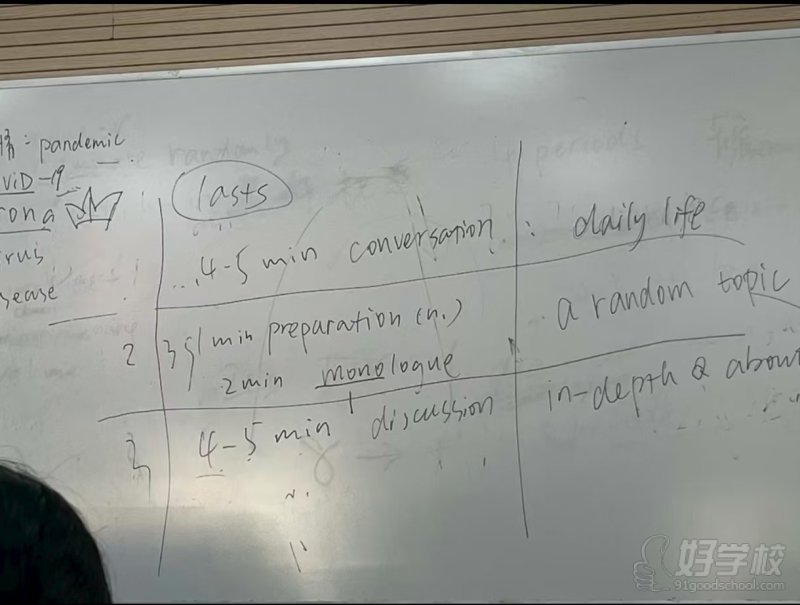 情: pandemic
VID-19
rona
rus
sease
lasts
4-5 min conversation : daily life
2 3 { 1 min preparation (n.) a random topic
2 min monologue
3 4-5 min discussion in-depth Q abou
好学校
91goodschool.com